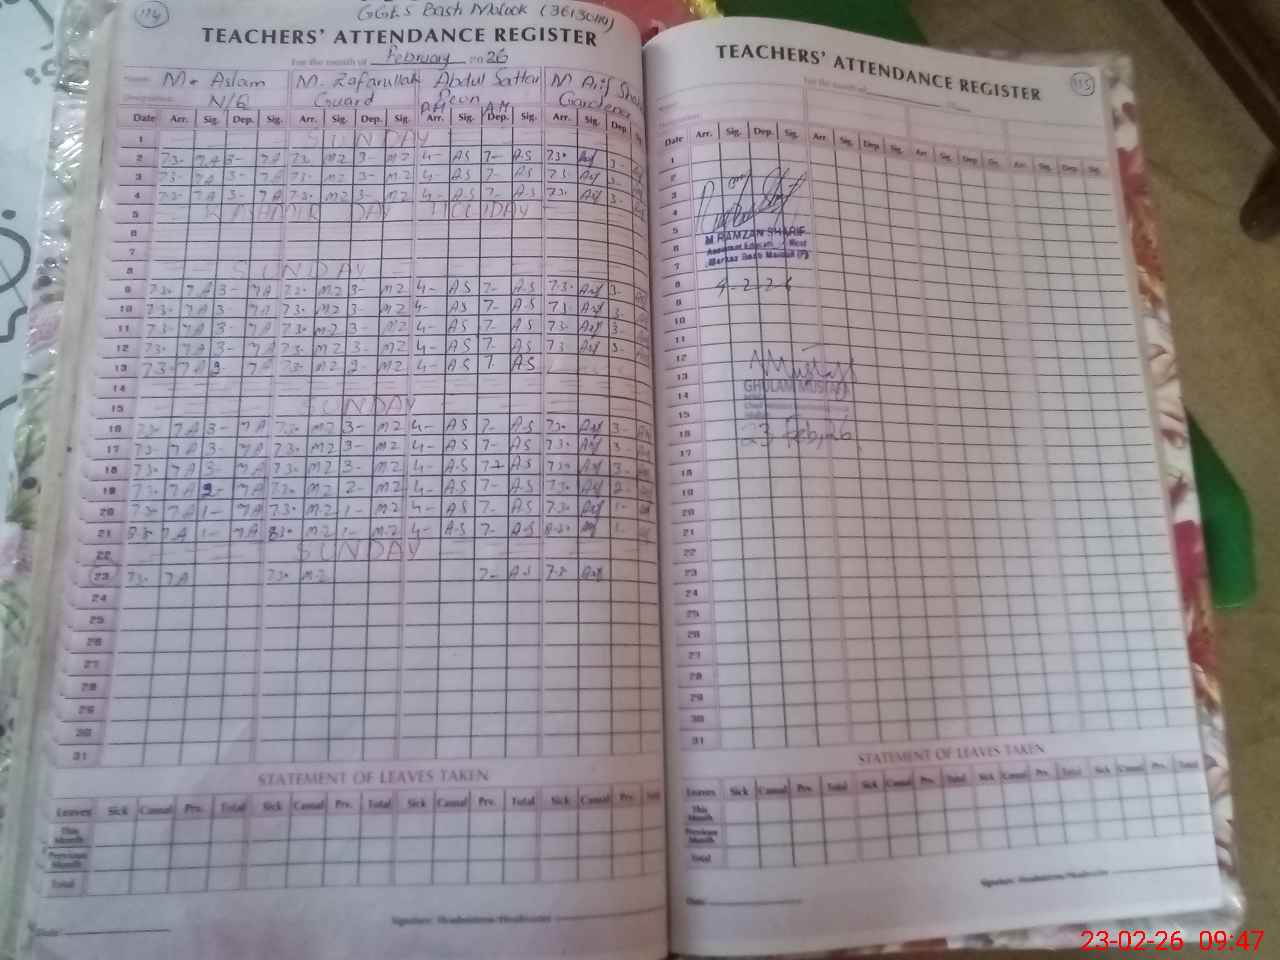 124
GGES Bash Malook (36130114)
TEACHERS' ATTENDANCE REGISTER
For the month of February 2026
Name: M. Aslam M. Zafarullah Abdul Sattar M Arif
Designation: N/Q Guard Peon Gardener
P.M A.M
Date Arr. Sig. Dep. Sig. Arr. Sig. Dep. Sig. Arr. Sig. Dep. Sig. Arr. Sig. Dep.
1 SUNDAY
2 7.3- 7A 3- 7A 7.3- MZ 3- MZ 4- AS 7- AS 7.3- 3-
3 7.3- 7A 3- 7A 7.3- MZ 3- MZ 4- AS 7- AS 7.3- 3-
4 7.3- 7A 3- 7A 7.3- MZ 3- MZ 4- AS 7- AS 7.3- 3-
5 KASHMIR DAY HOLIDAY
6
7
8 SUNDAY
9 7.3- 7A 3- 7A 7.3- MZ 3- MZ 4- AS 7- A.S 7.3- 3-
10 7.3- 7A 3- 7A 7.3- MZ 3- MZ 4- AS 7- A.S 7.3- 3-
11 7.3- 7A 3- 7A 7.3- MZ 3- MZ 4- AS 7- A.S 7.3- 3-
12 7.3- 7A 3- 7A 7.3- MZ 3- MZ 4- AS 7- AS 7.3 3-
13 7.3- 7A 2- 7A 7.3- MZ 2- MZ 4- AS 7- AS
14
15 SUNDAY
16 7.3- 7A 3- 7A 7.3- MZ 3- MZ 4- AS 7- A.S 7.3- 3-
17 7.3- 7A 3- 7A 7.3- MZ 3- MZ 4- AS 7- AS 7.3- 3-
18 7.3- 7A 3- 7A 7.3- MZ 3- MZ 4- A.S 7- AS 7.3- 3-
19 7.3- 7A 2- 7A 7.3- MZ 2- MZ 4- A.S 7- A.S 7.3- 2-
20 7.3- 7A 1- 7A 7.3- MZ 1- MZ 4- AS 7- AS 7.3- 1-
21 8.3- 7A 1- 7A 8.3- MZ 1- MZ 4- A.S 7- AS 8.3- 1-
22 SUNDAY
23 7.3- 7A 7.3- MZ 7- A.S 7.3-
24
25
26
27
28
29
30
31
STATEMENT OF LEAVES TAKEN
Leaves Sick Casual Prv. Total Sick Casual Prv. Total Sick Casual Prv. Total Sick Casual Prv.
This Month
Previous Month
Total
Signature Headmistress/Headmaster
Date
TEACHERS' ATTENDANCE REGISTER
115
For the month of
Date Arr. Sig. Dep. Sig. Arr. Sig. Dep. Sig. Arr. Sig. Dep. Sig. Arr. Sig. Dep. Sig.
1
2
3
4
5
M RAMZAN SHARIF
6
7
8 4-2-26
9
10
11
12
13
GHULAM MUSTAFA
14
15
16 23 Feb, 26
17
18
19
20
21
22
23
24
25
26
27
28
29
30
31
STATEMENT OF LEAVES TAKEN
Leaves Sick Casual Prv. Total Sick Casual Prv. Total Sick Casual Prv. Total Sick Casual Prv. Total
This Month
Previous Month
Total
Signature Headmistress/Headmaster
Date
23-02-26 09:47